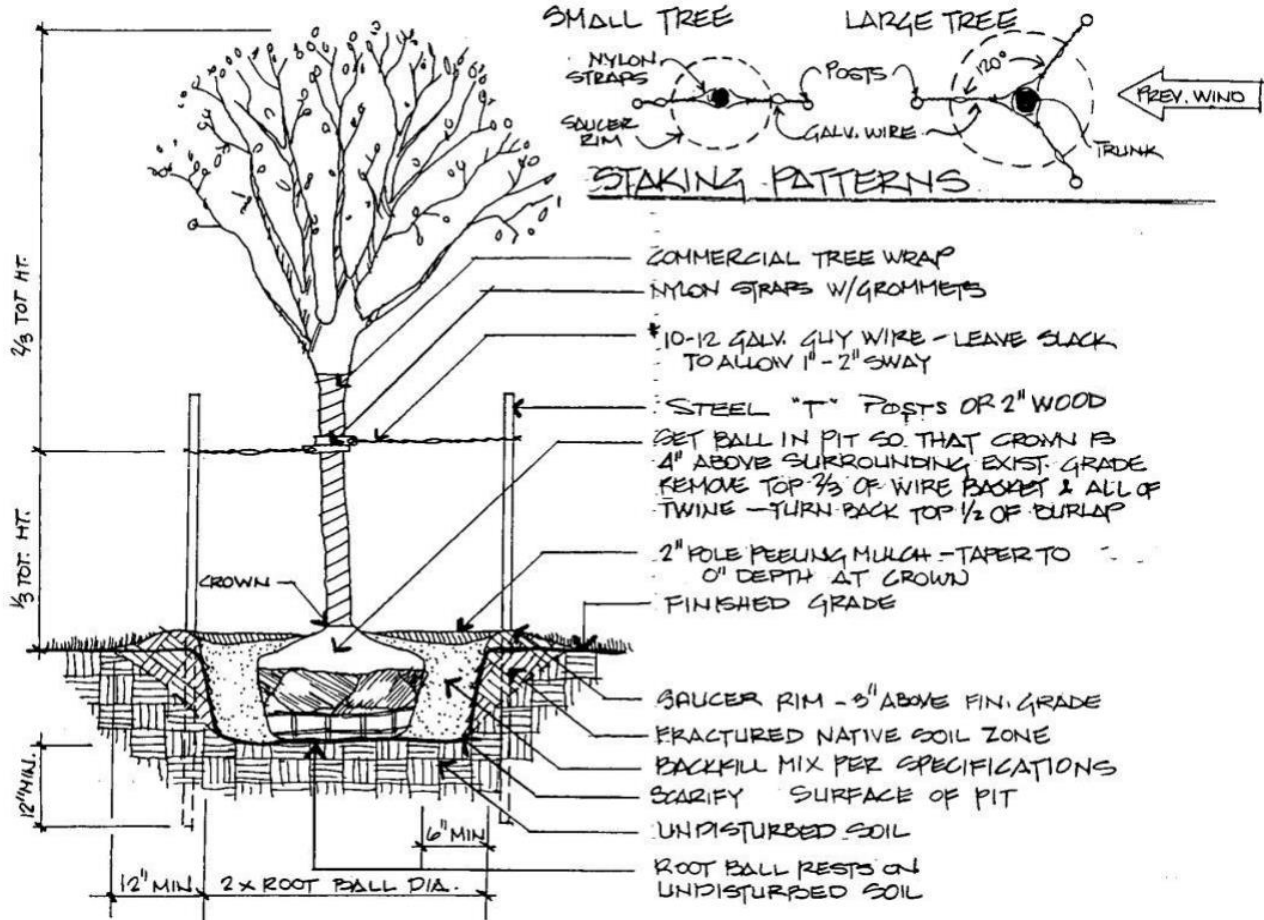 SMALL TREE
LARGE TREE
NYLON
STRAPS
POSTS
120°
PREV. WIND
SAUCER
RIM
GALV. WIRE
TRUNK
STAKING PATTERNS
COMMERCIAL TREE WRAP
NYLON STRAPS W/GROMMETS
#10-12 GALV. GUY WIRE - LEAVE SLACK
TO ALLOW 1" - 2" SWAY
STEEL "T" POSTS OR 2" WOOD
SET BALL IN PIT SO THAT CROWN IS
4" ABOVE SURROUNDING EXIST. GRADE
REMOVE TOP 2/3 OF WIRE BASKET & ALL OF
TWINE - TURN BACK TOP 1/2 OF BURLAP
2" POLE PEELING MULCH - TAPER TO
0" DEPTH AT CROWN
FINISHED GRADE
SAUCER RIM - 3" ABOVE FIN. GRADE
FRACTURED NATIVE SOIL ZONE
BACKFILL MIX PER SPECIFICATIONS
SCARIFY SURFACE OF PIT
UNDISTURBED SOIL
ROOT BALL RESTS ON
UNDISTURBED SOIL
2/3 TOT HT.
1/3 TOT. HT.
CROWN
12" MIN.
6" MIN
12" MIN.
2 x ROOT BALL DIA.